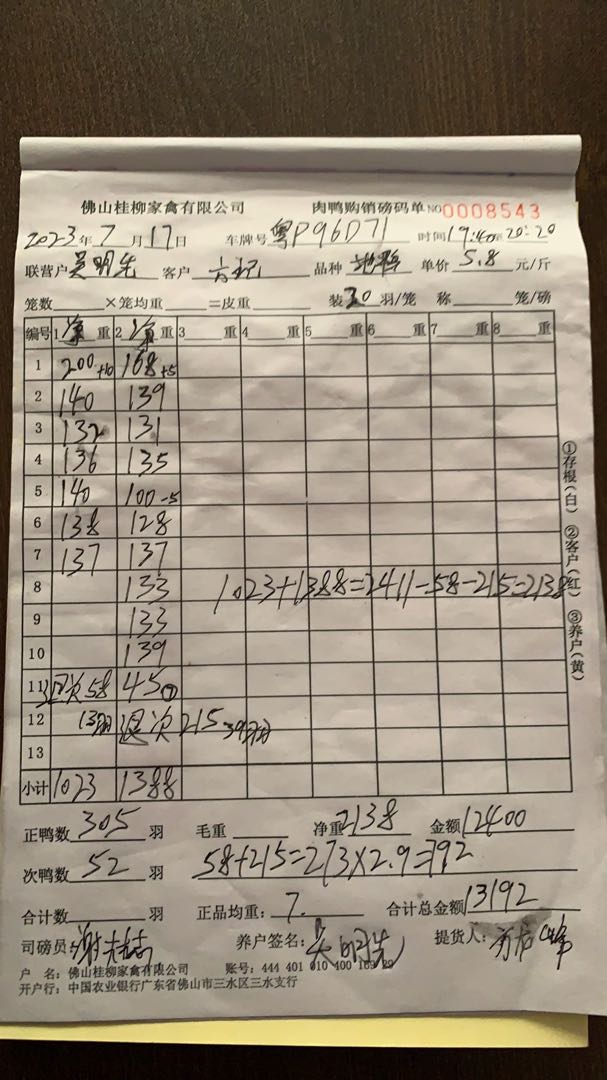 佛山桂柳家禽有限公司 肉鸭购销磅码单 NO 0008543
2023年7月17日 车牌号 粤P96D71 时间 19:40至20:20
联营户 吴明先 客户 品种 单价 5.8 元/斤
笼数 ×笼均重 =皮重 装 30 羽/笼 称 笼/磅
编号 1 重 2 重 3 重 4 重 5 重 6 重 7 重 8 重
1 200+10 168+5
2 140 139
3 132 131
4 136 135
5 140 100-5
6 138 128
7 137 137
8 133 1023+1388=2411-58-215=2138
9 133
10 139
11 退次58 45
12 13羽 退次215 39羽
13
小计 1023 1388
正鸭数 305 羽 毛重 净重 2138 金额 12400
次鸭数 52 羽 58+215=273×2.9=792
合计数 羽 正品均重: 7. 合计总金额 13192
司磅员: 养户签名: 吴明先 提货人:
户 名: 佛山桂柳家禽有限公司 账号: 444 401 010 400 169 29
开户行: 中国农业银行广东省佛山市三水区三水支行
①存根(白) ②客户(红) ③养户(黄)